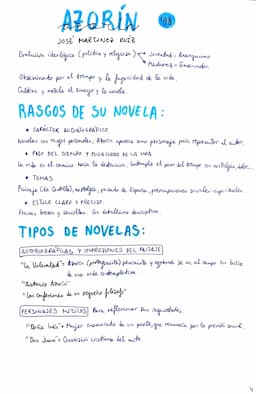 AZORÍN 98
JOSÉ MARTÍNEZ RUÍZ
Evolución ideológica (política y religiosa) Juventud = Anarquismo
Madurez = Conservador.
Obsesionado por el tiempo y la fugacidad de la vida
Cultiva y mezcla el ensayo y la novela.
RASGOS DE SU NOVELA:
• CARÁCTER AUTOBIOGRÁFICO
Novelas con rasgos personales; Azorín aparece como personaje para representar al autor.
• PASO DEL TIEMPO Y FUGACIDAD DE LA VIDA
La vida es el camino hacia la destrucción, contempla el paso del tiempo con nostalgia, dolor...
• TEMAS
Paisaje (de Castilla), nostalgia, pasado de España, preocupaciones sociales-espirituales
• ESTILO CLARO Y PRECISO.
Frases breves y sencillas. Con detallismo descriptivo.
TIPOS DE NOVELAS:
AUTOBIOGRÁFICAS Y IMPRESIONES DEL PAISAJE
"La Voluntad" = Azorín (protagonista) pesimista y agotado se va al campo en busca
de una vida contemplativa
"Antonio Azorín"
"Las confesiones de un pequeño filósofo"
PERSONAJES MÍTICOS Para reflexionar sus inquietudes.
"Doña Inés" = Mujer enamorada de un poeta, que renuncia por la presión social.
"Don Juan" = Conversión cristiana del autor.